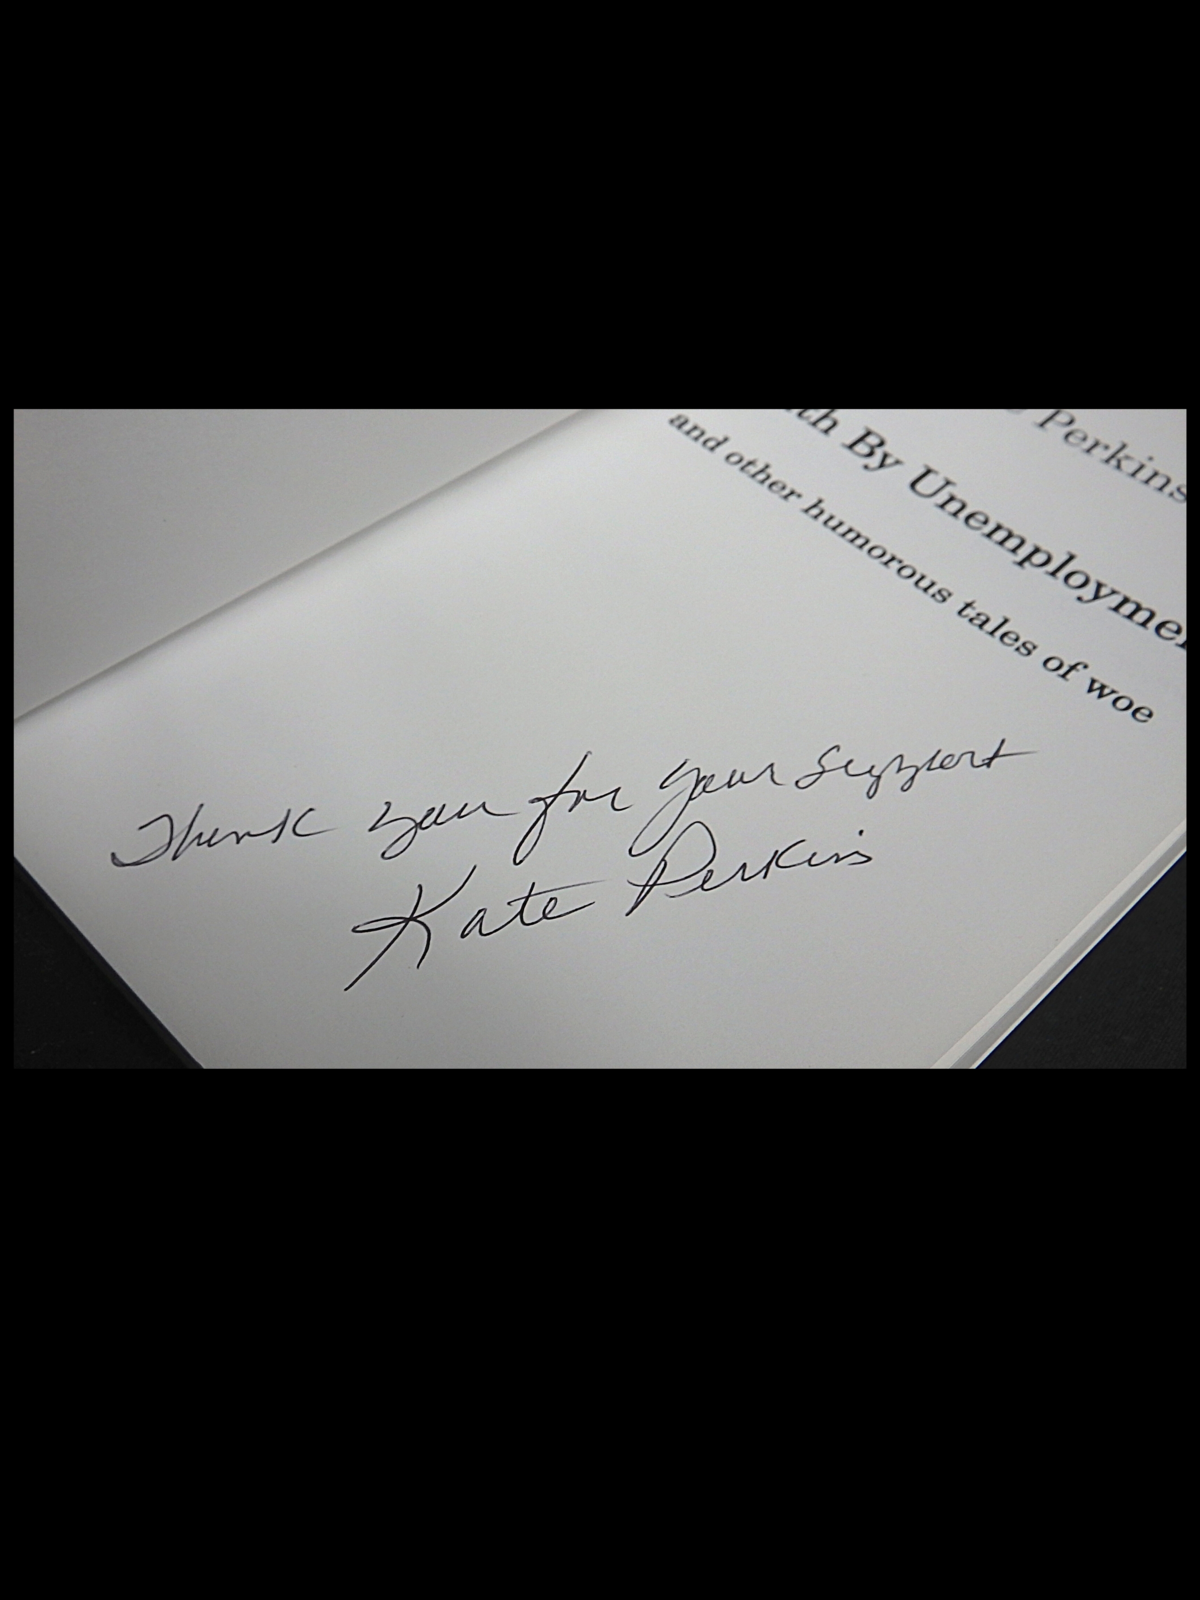 Perkins
By Unemployme
and other humorous tales of woe
Thank you for your support
Kate Perkins